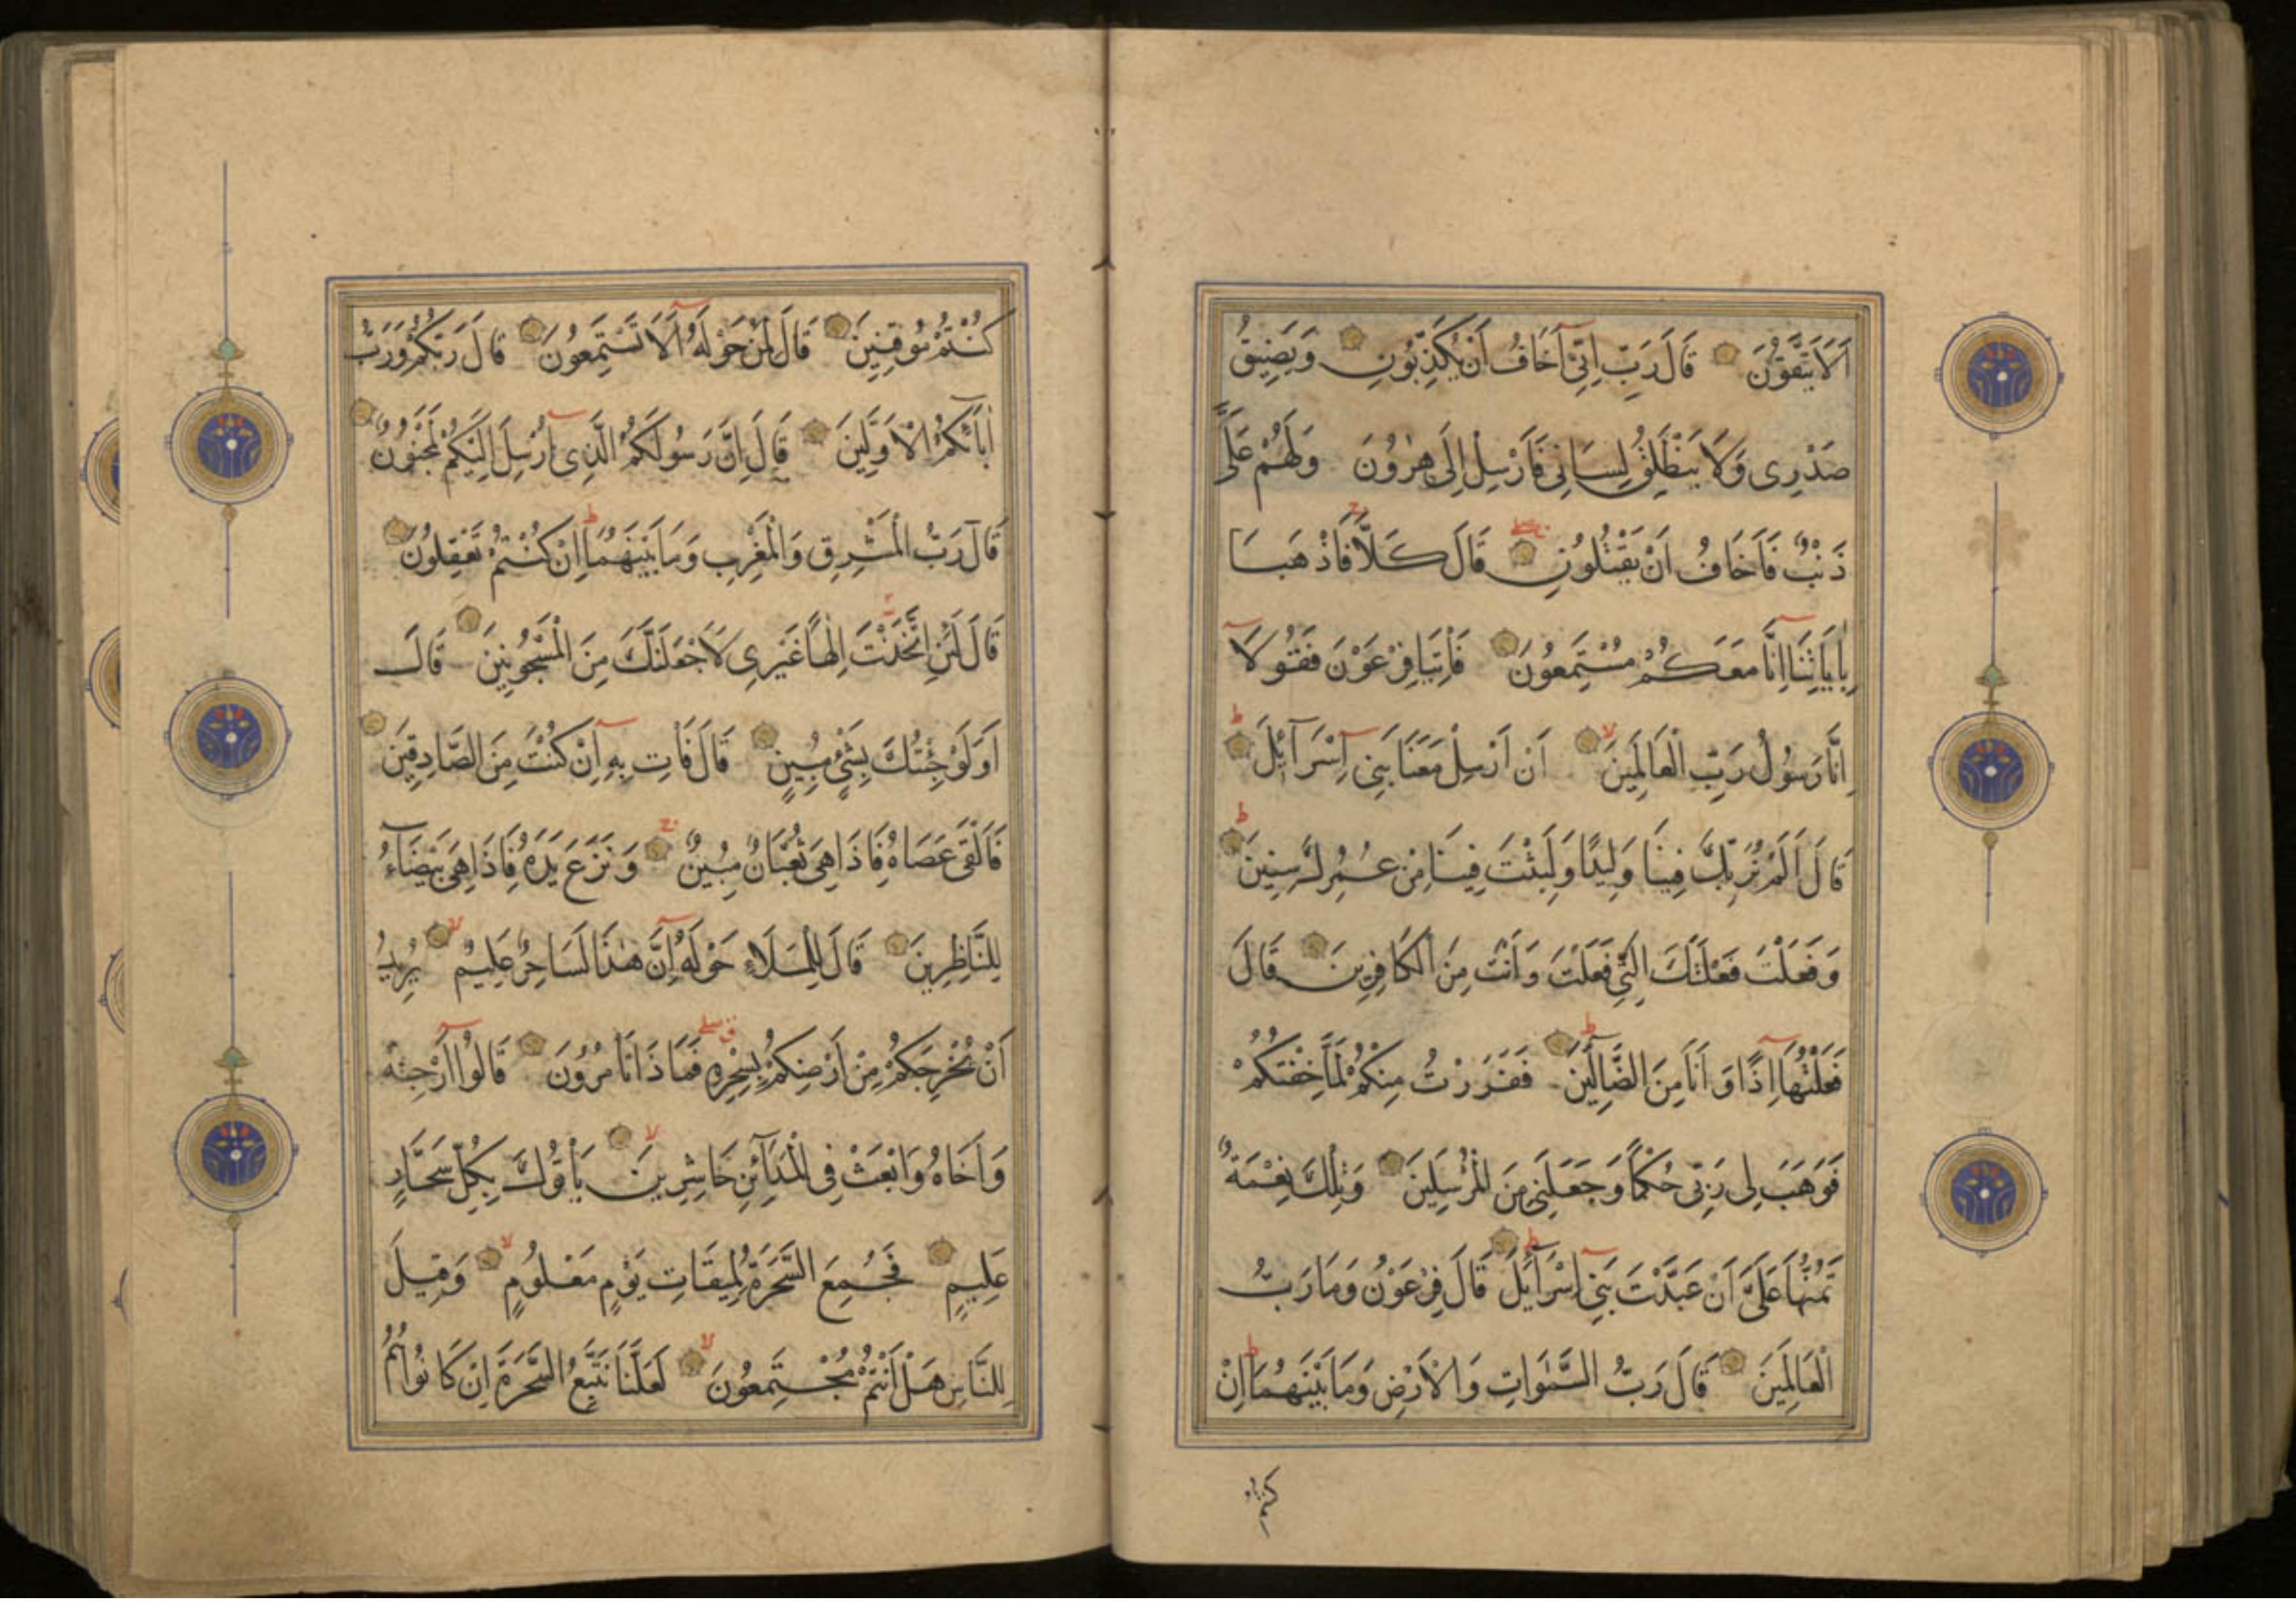 اَلَا يَتَّقُونَ قَالَ رَبِّ اِنِّى اَخَافُ اَنْ يُكَذِّبُونِ وَيَضِيقُ
صَدْرِى وَلَا يَنْطَلِقُ لِسَانِى فَاَرْسِلْ اِلَى هٰرُونَ وَلَهُمْ عَلَىَّ
ذَنْبٌ فَاَخَافُ اَنْ يَقْتُلُونِ قَالَ كَلَّا فَاذْهَبَا
بِاٰيَاتِنَا اِنَّا مَعَكُمْ مُسْتَمِعُونَ فَاْتِيَا فِرْعَوْنَ فَقُولَا
اِنَّا رَسُولُ رَبِّ الْعَالَمِينَ اَنْ اَرْسِلْ مَعَنَا بَنِى اِسْرَآئِلَ
قَالَ اَلَمْ نُرَبِّكَ فِينَا وَلِيدًا وَلَبِثْتَ فِينَا مِنْ عُمُرِكَ سِنِينَ
وَفَعَلْتَ فَعْلَتَكَ الَّتِى فَعَلْتَ وَاَنْتَ مِنَ الْكَافِرِينَ قَالَ
فَعَلْتُهَا اِذًا وَاَنَا مِنَ الضَّالِّينَ فَفَرَرْتُ مِنْكُمْ لَمَّا خِفْتُكُمْ
فَوَهَبَ لِى رَبِّى حُكْمًا وَجَعَلَنِى مِنَ الْمُرْسَلِينَ وَتِلْكَ نِعْمَةٌ
تَمُنُّهَا عَلَىَّ اَنْ عَبَّدْتَ بَنِى اِسْرَآئِلَ قَالَ فِرْعَوْنُ وَمَا رَبُّ
الْعَالَمِينَ قَالَ رَبُّ السَّمٰوَاتِ وَالْاَرْضِ وَمَا بَيْنَهُمَا اِنْ
كنتم
كُنْتُمْ مُوقِنِينَ قَالَ لِمَنْ حَوْلَهُ اَلَا تَسْتَمِعُونَ قَالَ رَبُّكُمْ وَرَبُّ
اٰبَآئِكُمُ الْاَوَّلِينَ قَالَ اِنَّ رَسُولَكُمُ الَّذِى اُرْسِلَ اِلَيْكُمْ لَمَجْنُونٌ
قَالَ رَبُّ الْمَشْرِقِ وَالْمَغْرِبِ وَمَا بَيْنَهُمَا اِنْ كُنْتُمْ تَعْقِلُونَ
قَالَ لَئِنِ اتَّخَذْتَ اِلٰهًا غَيْرِى لَاَجْعَلَنَّكَ مِنَ الْمَسْجُونِينَ قَالَ
اَوَلَوْ جِئْتُكَ بِشَىْءٍ مُبِينٍ قَالَ فَاْتِ بِهِ اِنْ كُنْتَ مِنَ الصَّادِقِينَ
فَاَلْقَى عَصَاهُ فَاِذَا هِىَ ثُعْبَانٌ مُبِينٌ وَنَزَعَ يَدَهُ فَاِذَا هِىَ بَيْضَآءُ
لِلنَّاظِرِينَ قَالَ لِلْمَلَاءِ حَوْلَهُ اِنَّ هٰذَا لَسَاحِرٌ عَلِيمٌ يُرِيدُ
اَنْ يُخْرِجَكُمْ مِنْ اَرْضِكُمْ بِسِحْرِهِ فَمَا ذَا تَاْمُرُونَ قَالُوا اَرْجِهْ
وَاَخَاهُ وَابْعَثْ فِى الْمَدَآئِنِ حَاشِرِينَ يَاْتُوكَ بِكُلِّ سَحَّارٍ
عَلِيمٍ فَجُمِعَ السَّحَرَةُ لِمِيقَاتِ يَوْمٍ مَعْلُومٍ وَقِيلَ
لِلنَّاسِ هَلْ اَنْتُمْ مُجْتَمِعُونَ لَعَلَّنَا نَتَّبِعُ السَّحَرَةَ اِنْ كَانُوا هُمُ